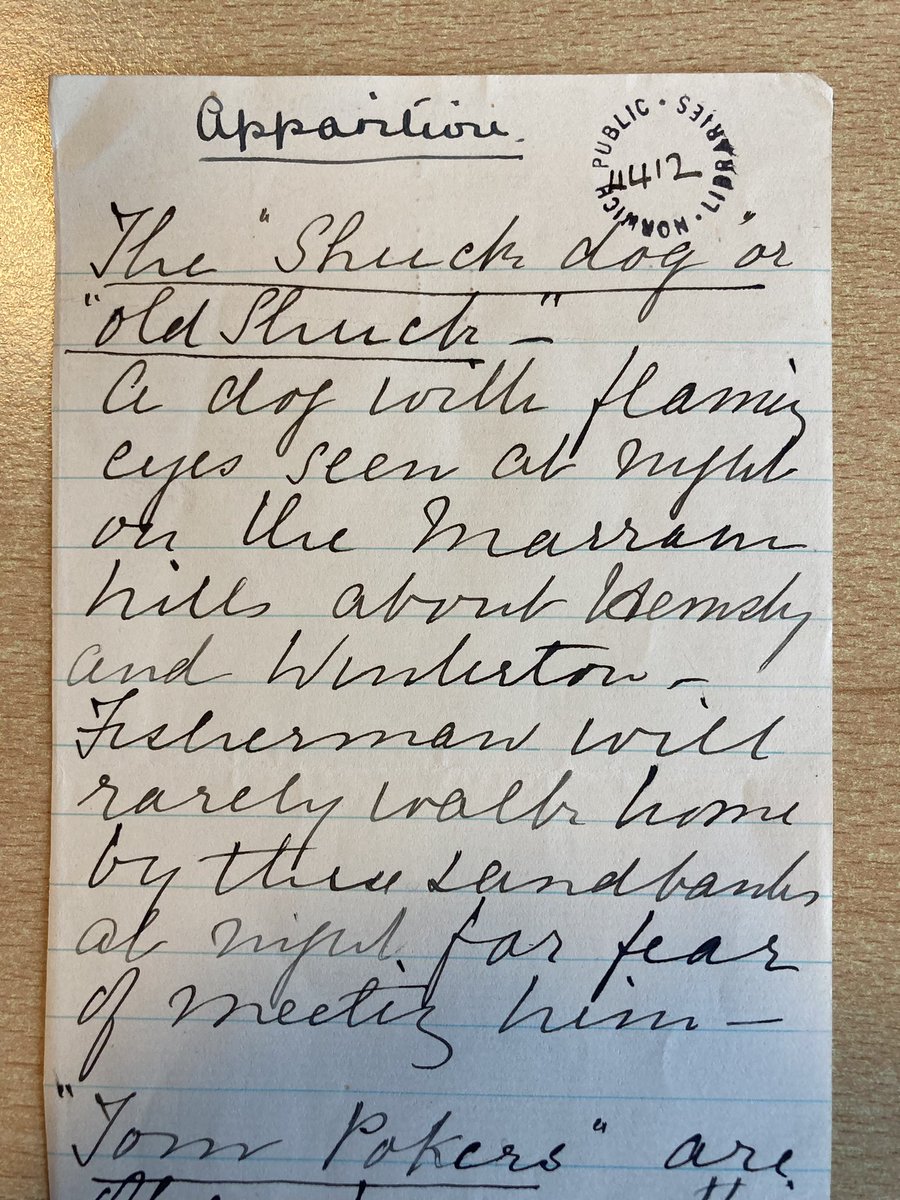 Apparition.
NORWICH PUBLIC · LIBRARIES ·
4412
The "Shuck dog" or
"old Shuck" -
A dog with flaming
eyes seen at night
on the Marram
hills about Hemsby
and Winterton -
Fisherman will
rarely walk home
by these sandbanks
at night for fear
of meeting him -
"Tom Pokers" are